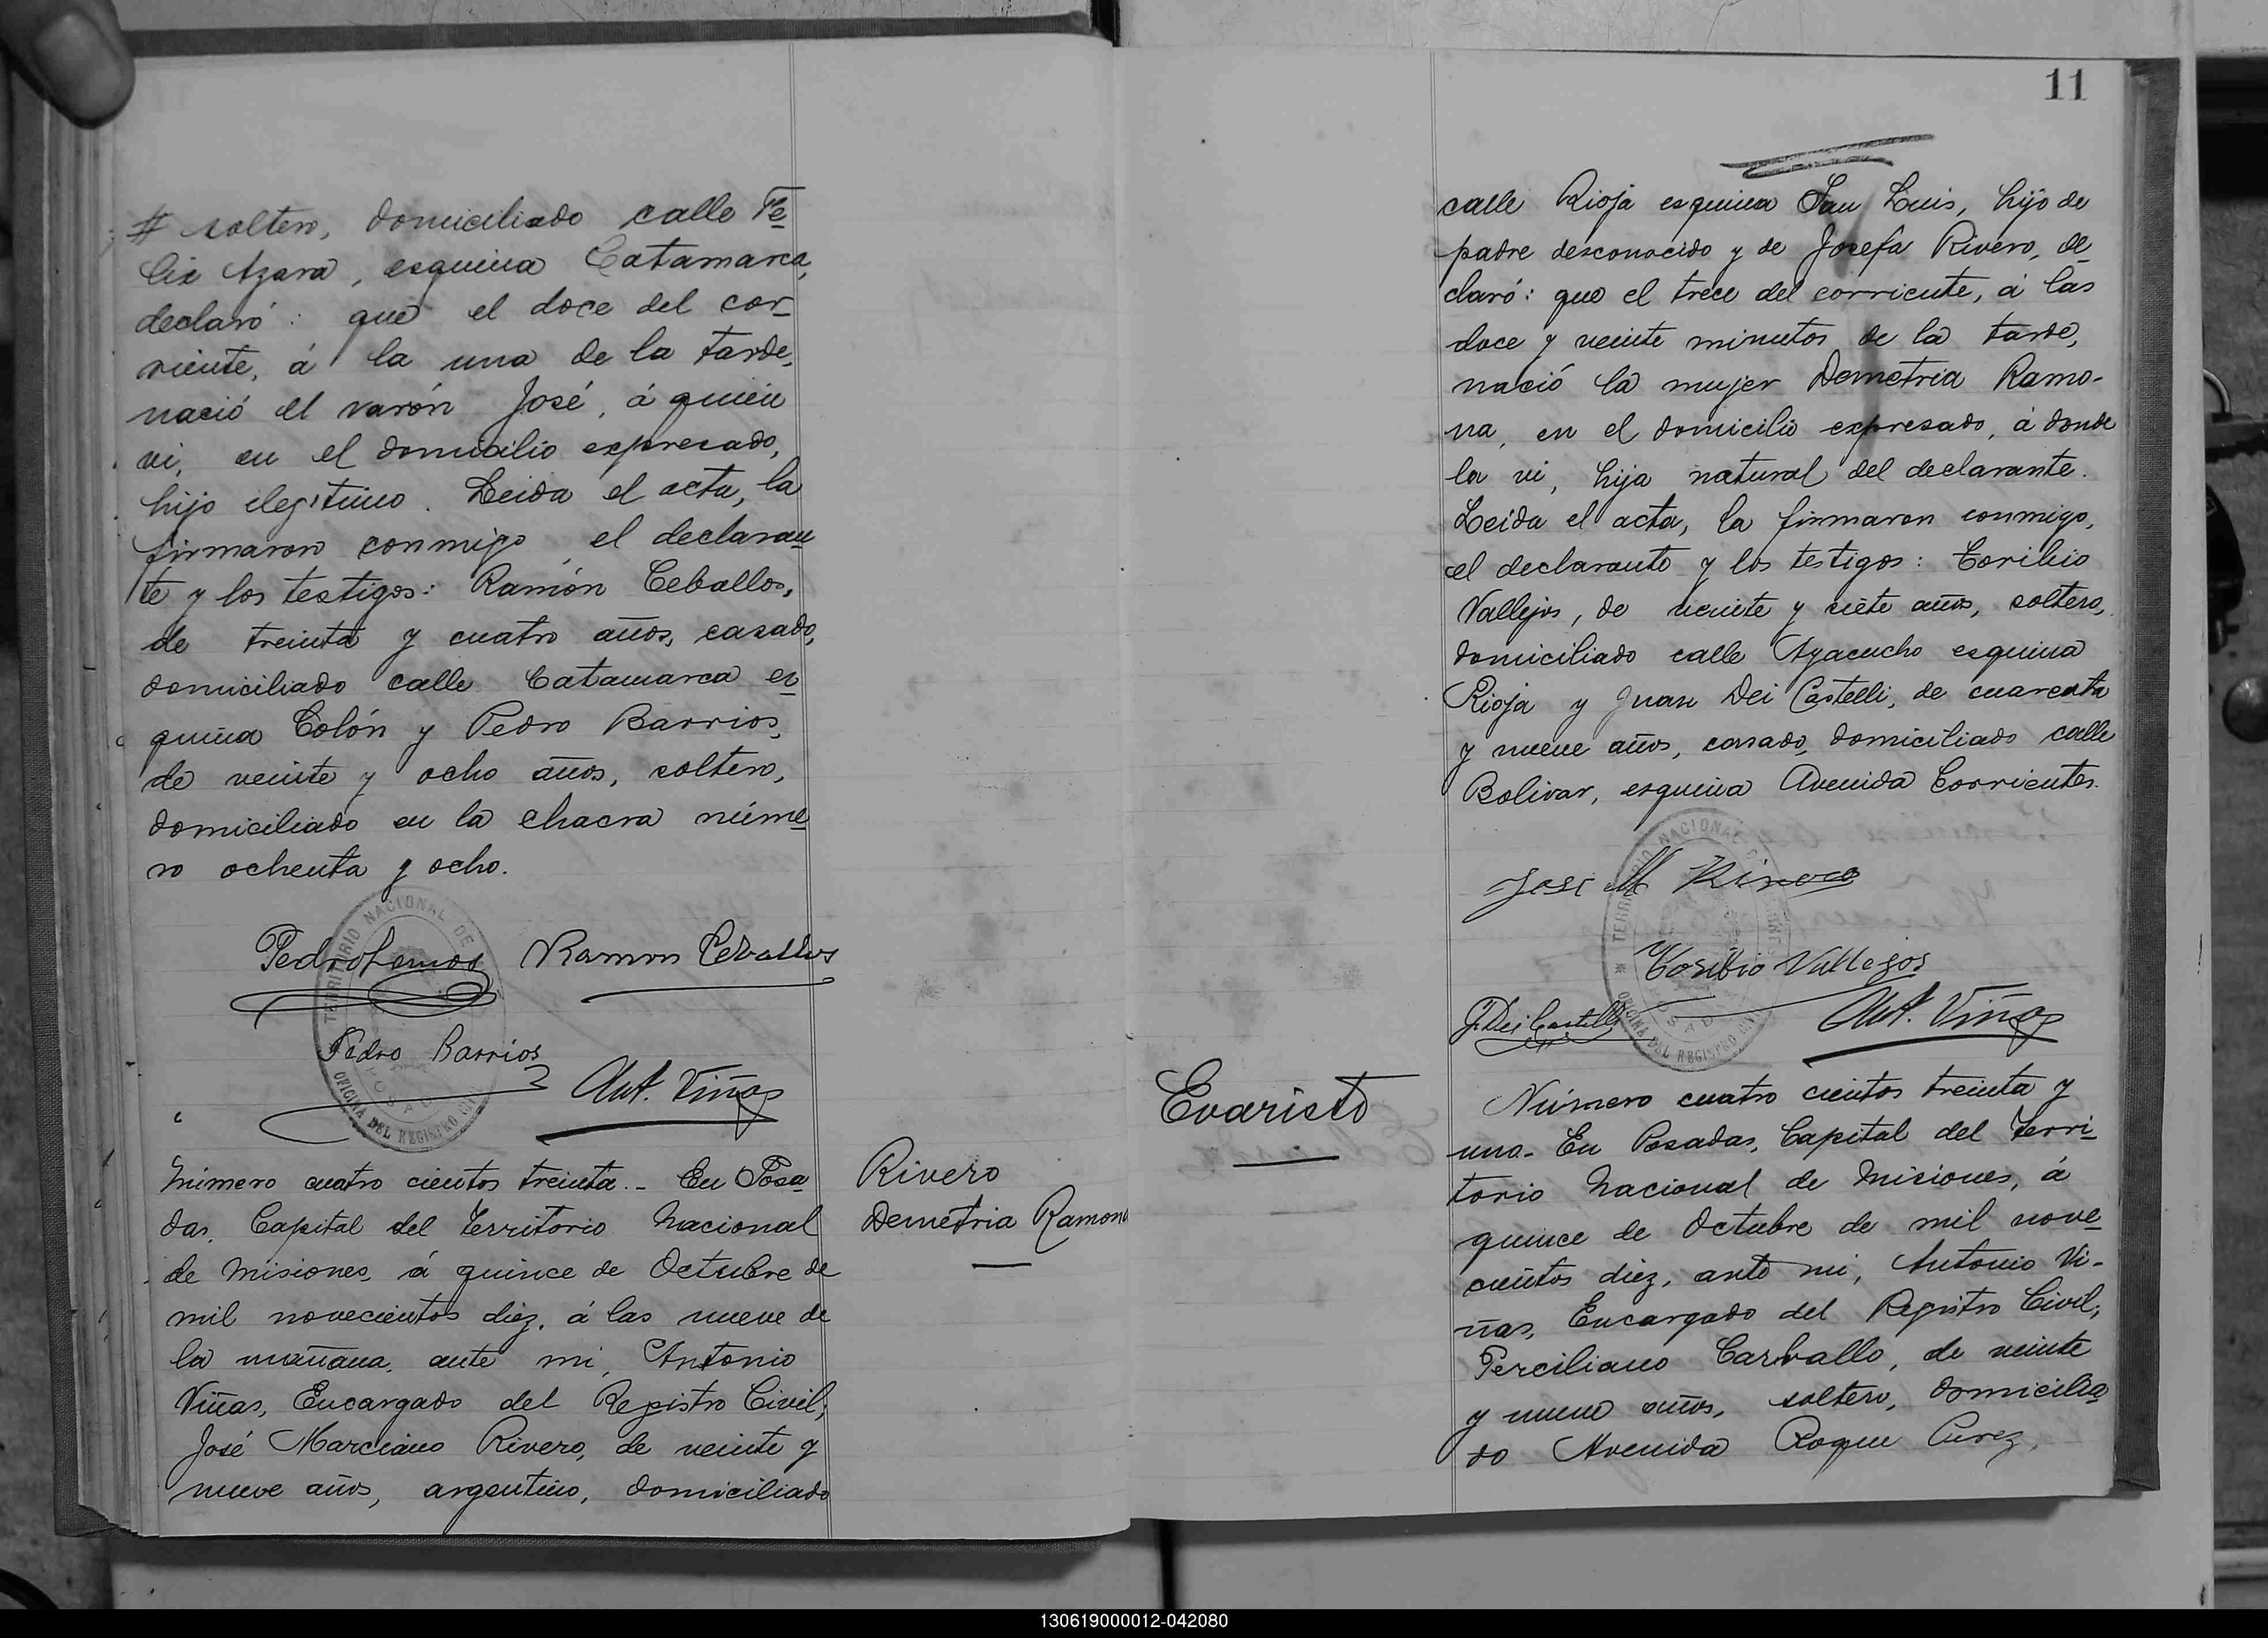 # soltero, domiciliado calle Fe
lix Azara, esquina Catamarca,
declaró: que el doce del cor
riente, á la una de la tarde,
nació el varón José, á quien
vi, en el domicilio expresado,
hijo ilegítimo. Leida el acta, la
firmaron conmigo, el declaran
te y los testigos: Ramón Ceballos,
de treinta y cuatro años, casado,
domiciliado calle Catamarca es
quina Colón y Pedro Barrios,
de veinte y ocho años, soltero,
domiciliado en la chacra núme
ro ochenta y ocho.
TERRITORIO NACIONAL DE
OFICINA DEL REGISTRO CIVIL
Pedro Lemos Ramon Ceballos
Pedro Barrios
Ant. Viñas
Número cuatro cientos treinta.- En Posa
das, Capital del Territorio Nacional
de Misiones, á quince de Octubre de
mil novecientos diez, á las nueve de
la mañana, ante mi, Antonio
Viñas, Encargado del Registro Civil;
José Marciano Rivero, de veinte y
nueve años, argentino, domiciliado
Rivero
Demetria Ramona
11
calle Rioja esquina San Luis, hijo de
padre desconocido y de Josefa Rivero, de
claró: que el trece del corriente, á las
doce y veinte minutos de la tarde,
nació la mujer Demetria Ramo-
na, en el domicilio expresado, á donde
la vi, hija natural del declarante.
Leida el acta, la firmaron conmigo,
el declarante y los testigos: Toribio
Vallejos, de veinte y siete años, soltero,
domiciliado calle Ayacucho esquina
Rioja y Juan Dei Castelli, de cuarenta
y nueve años, casado, domiciliado calle
Bolivar, esquina Avenida Corrientes.
TERRITORIO NACIONAL DE
POSADAS
OFICINA DEL REGISTRO CIVIL
Jose M Rivero
Toribio Vallejos
J. Dei Castelli Ant. Viñas
Evaristo
Número cuatro cientos treinta y
uno.- En Posadas, Capital del Terri
torio Nacional de Misiones, á
quince de Octubre de mil nove
cientos diez, ante mi, Antonio Vi-
ñas, Encargado del Registro Civil;
Perciliano Carballo, de veinte
y nueve años, soltero, domicilia
do Avenida Roque Perez,
130619000012-042080